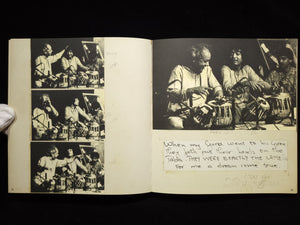 When my Guru went to his Guru
they both put their hands on the
tabla. THEY WERE EXACTLY THE SAME.
For me a dream came true